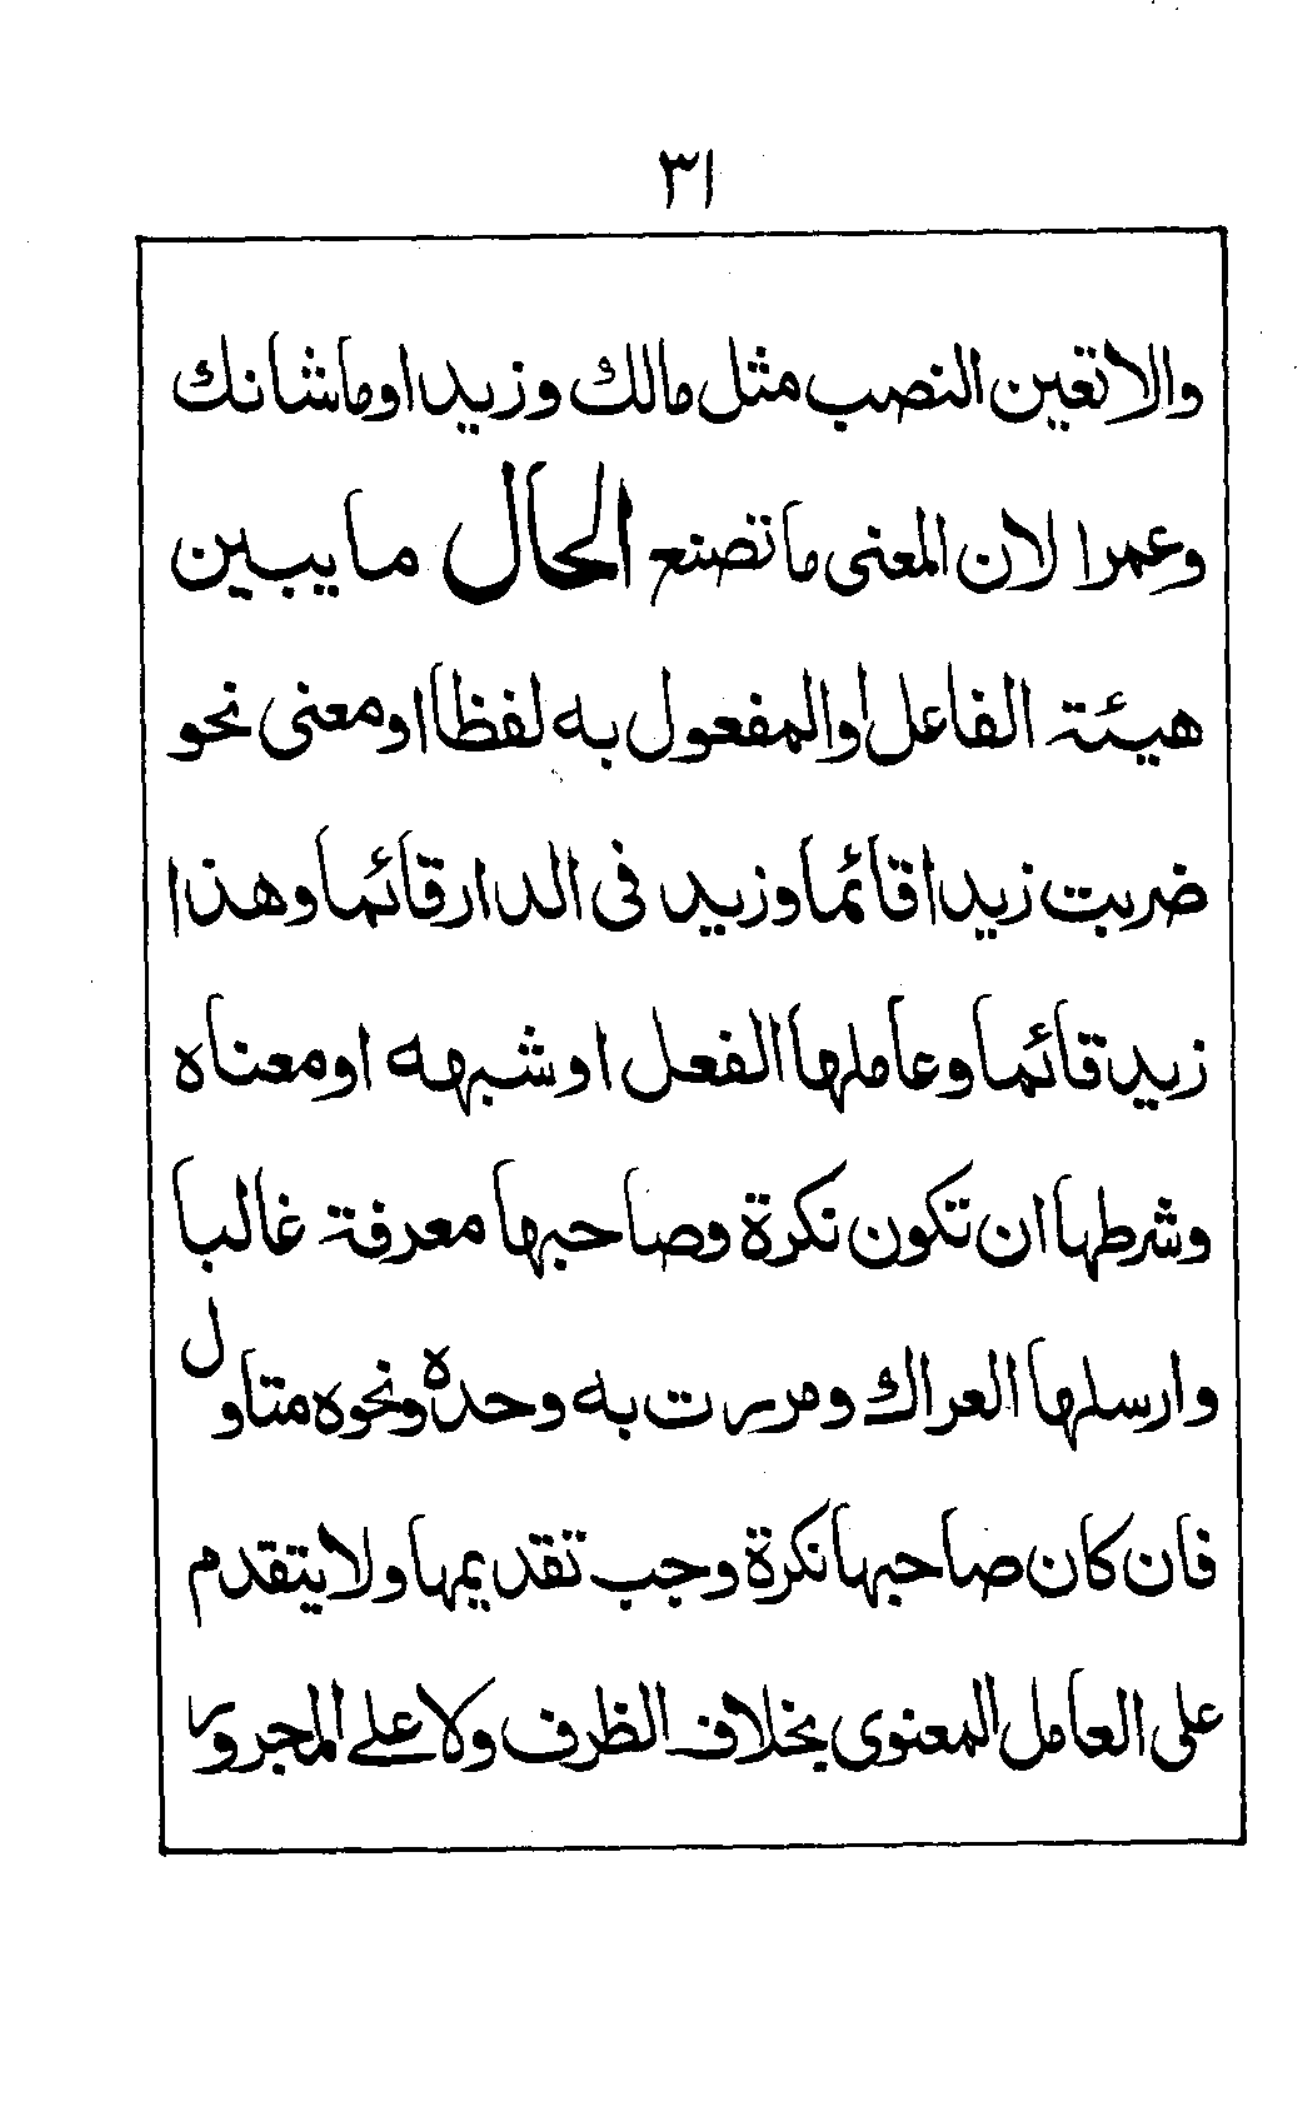 ٣١
والا تعين النصب مثل مالك وزيدا او ما شانك
وعمرا لان المعنى ما تصنع الحال ما يبين
هيئة الفاعل او المفعول به لفظا او معنى نحو
ضربت زيدا قائما وزيد فى الدار قائما وهذا
زيد قائما وعاملها الفعل او شبهه او معناه
وشرطها ان تكون نكرة وصاحبها معرفة غالبا
وارسلها العراك ومررت به وحده ونحوه متاول
فان كان صاحبها نكرة وجب تقديمها ولا يتقدم
على العامل المعنوى بخلاف الظرف ولا على المجرور